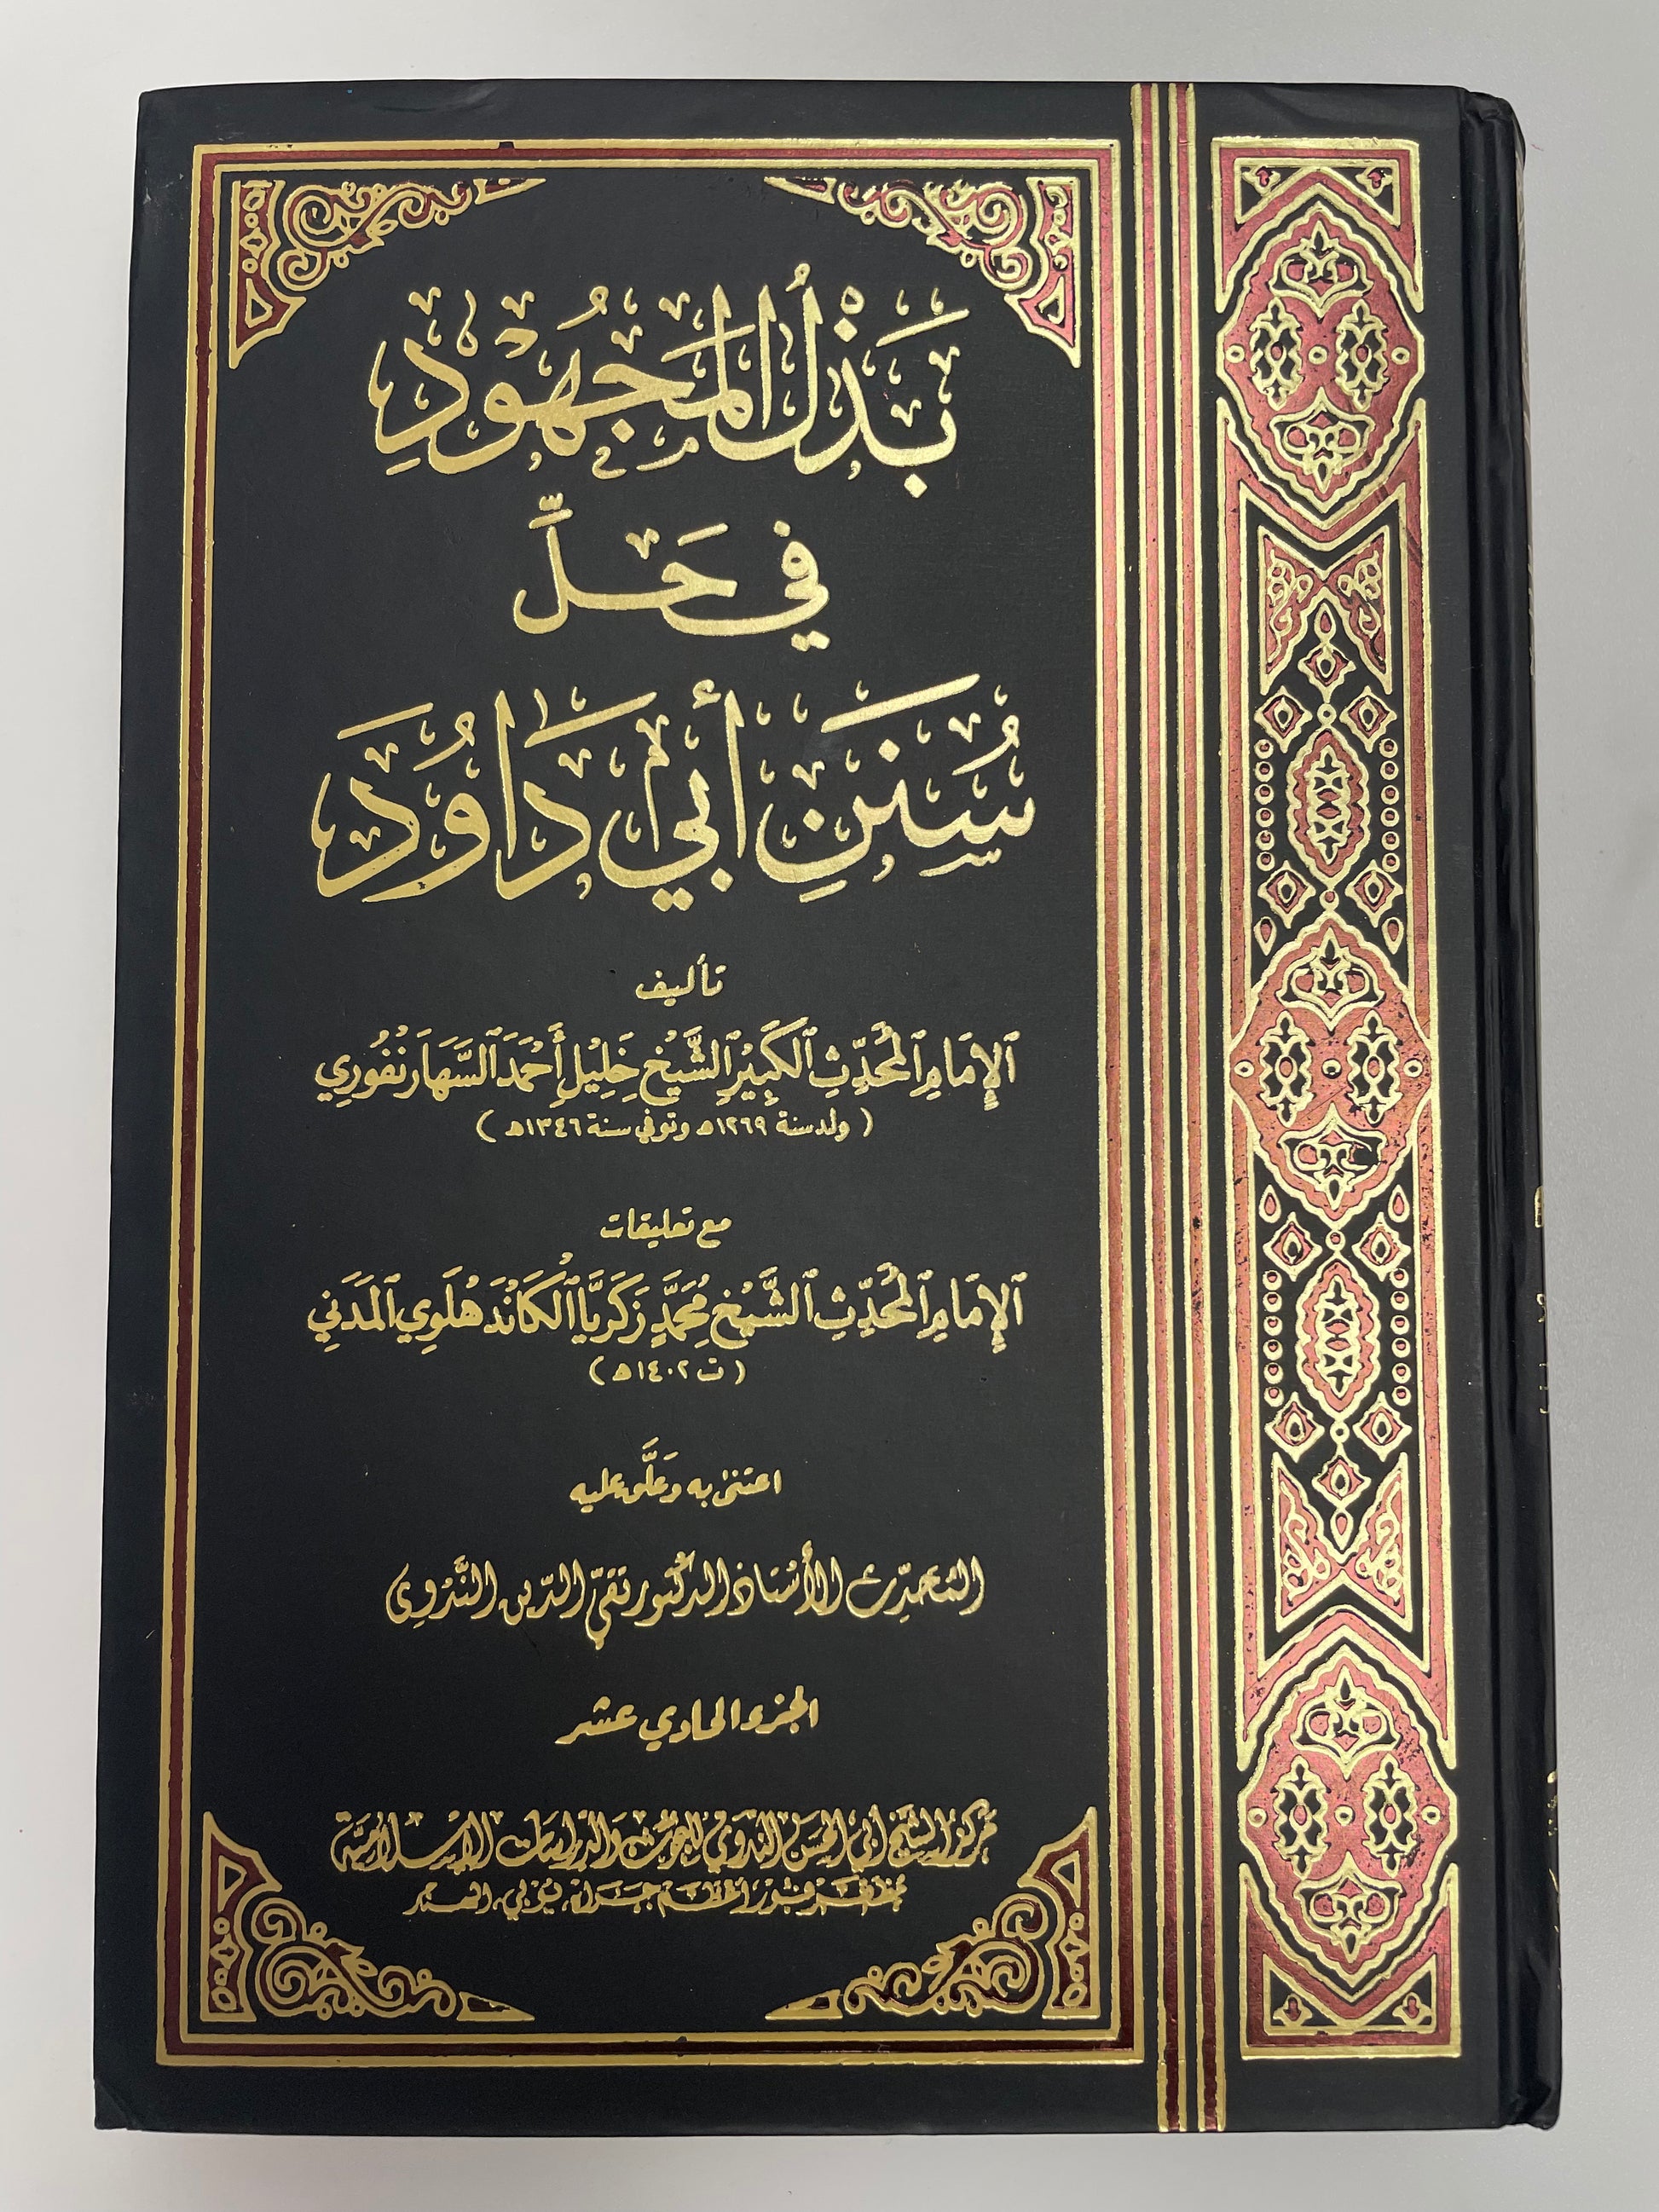 بَذْلُ الْمَجْهُوْدِ
فِي حَلِّ
سُنَنِ أَبِي دَاوُدَ
تأليف
الإِمَامِ الْمُحَدِّثِ الْكَبِيْرِ الشَّيْخِ خَلِيْلِ أَحْمَدَ السَّهَارَنْفُوْرِي
( ولد سنة ١٢٦٩هـ وتوفي سنة ١٣٤٦هـ )
مع تعليقات
الإِمَامِ الْمُحَدِّثِ الشَّيْخِ مُحَمَّدٍ زَكَرِيَّا الْكَانْدَهْلَوِي الْمَدَنِي
( ت ١٤٠٢هـ )
اعتنى به وَعَلَّق عليه
المُحدِّث الأُسْتاذ الدكتور تقيّ الدّين النَّدْوي
الجزء الحادي عشر
مركز الشيخ أبي الحسن الندوي للبحوث والدراسات الإسلامية
مظفر فور، أعظم جراه، يوبي، الهند